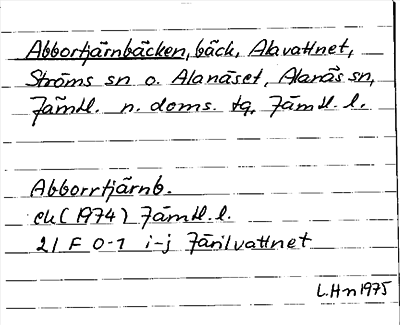 Abbortjärnbäcken, bäck, Alavattnet,
Ströms sn o. Alanäset, Alanäs sn,
Jämtl. n. doms. tg. Jämtl. l.
Abborrtjärnb.
ek (1974) Jämtl. l.
21 F 0-1 i-j Järilvattnet
L.Hn 1975